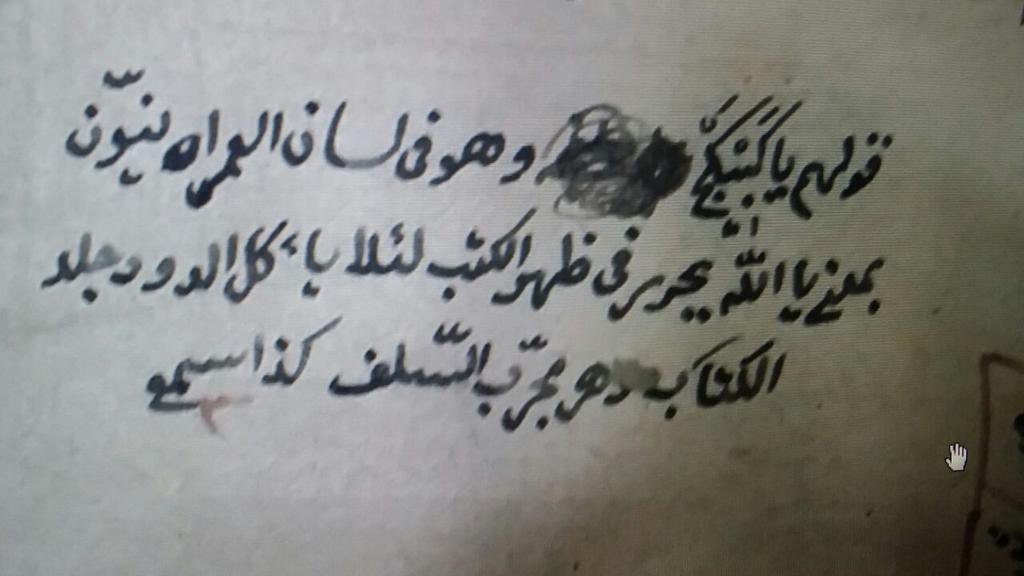 قولهم يا كَبَيْكَجْ وهو فى لسان العمراه نيّون
بمعنے يا اللّٰه يحرر فى ظهر الكتب لئلا يا ٔكل الدود جلد
الكتاب وهو مجرّب السّلف كذا سمع